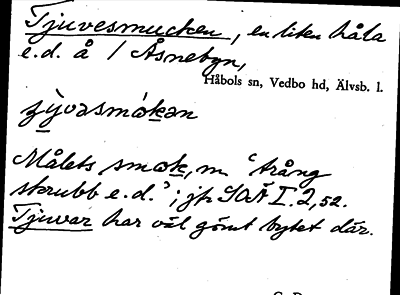 Tjuvesmucken, en liten håla
e.d. å / Åsnebyn,
Håbols sn, Vedbo hd, Älvsb. l.
Målets smok, m 'trång
skrubb e.d.'; jfr SOÄ I.2,52.
Tjuvar har väl gömt bytet där.